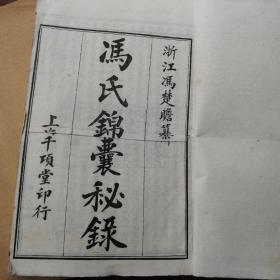 浙江馮楚瞻纂
馮氏錦囊秘錄
上海千頃堂印行